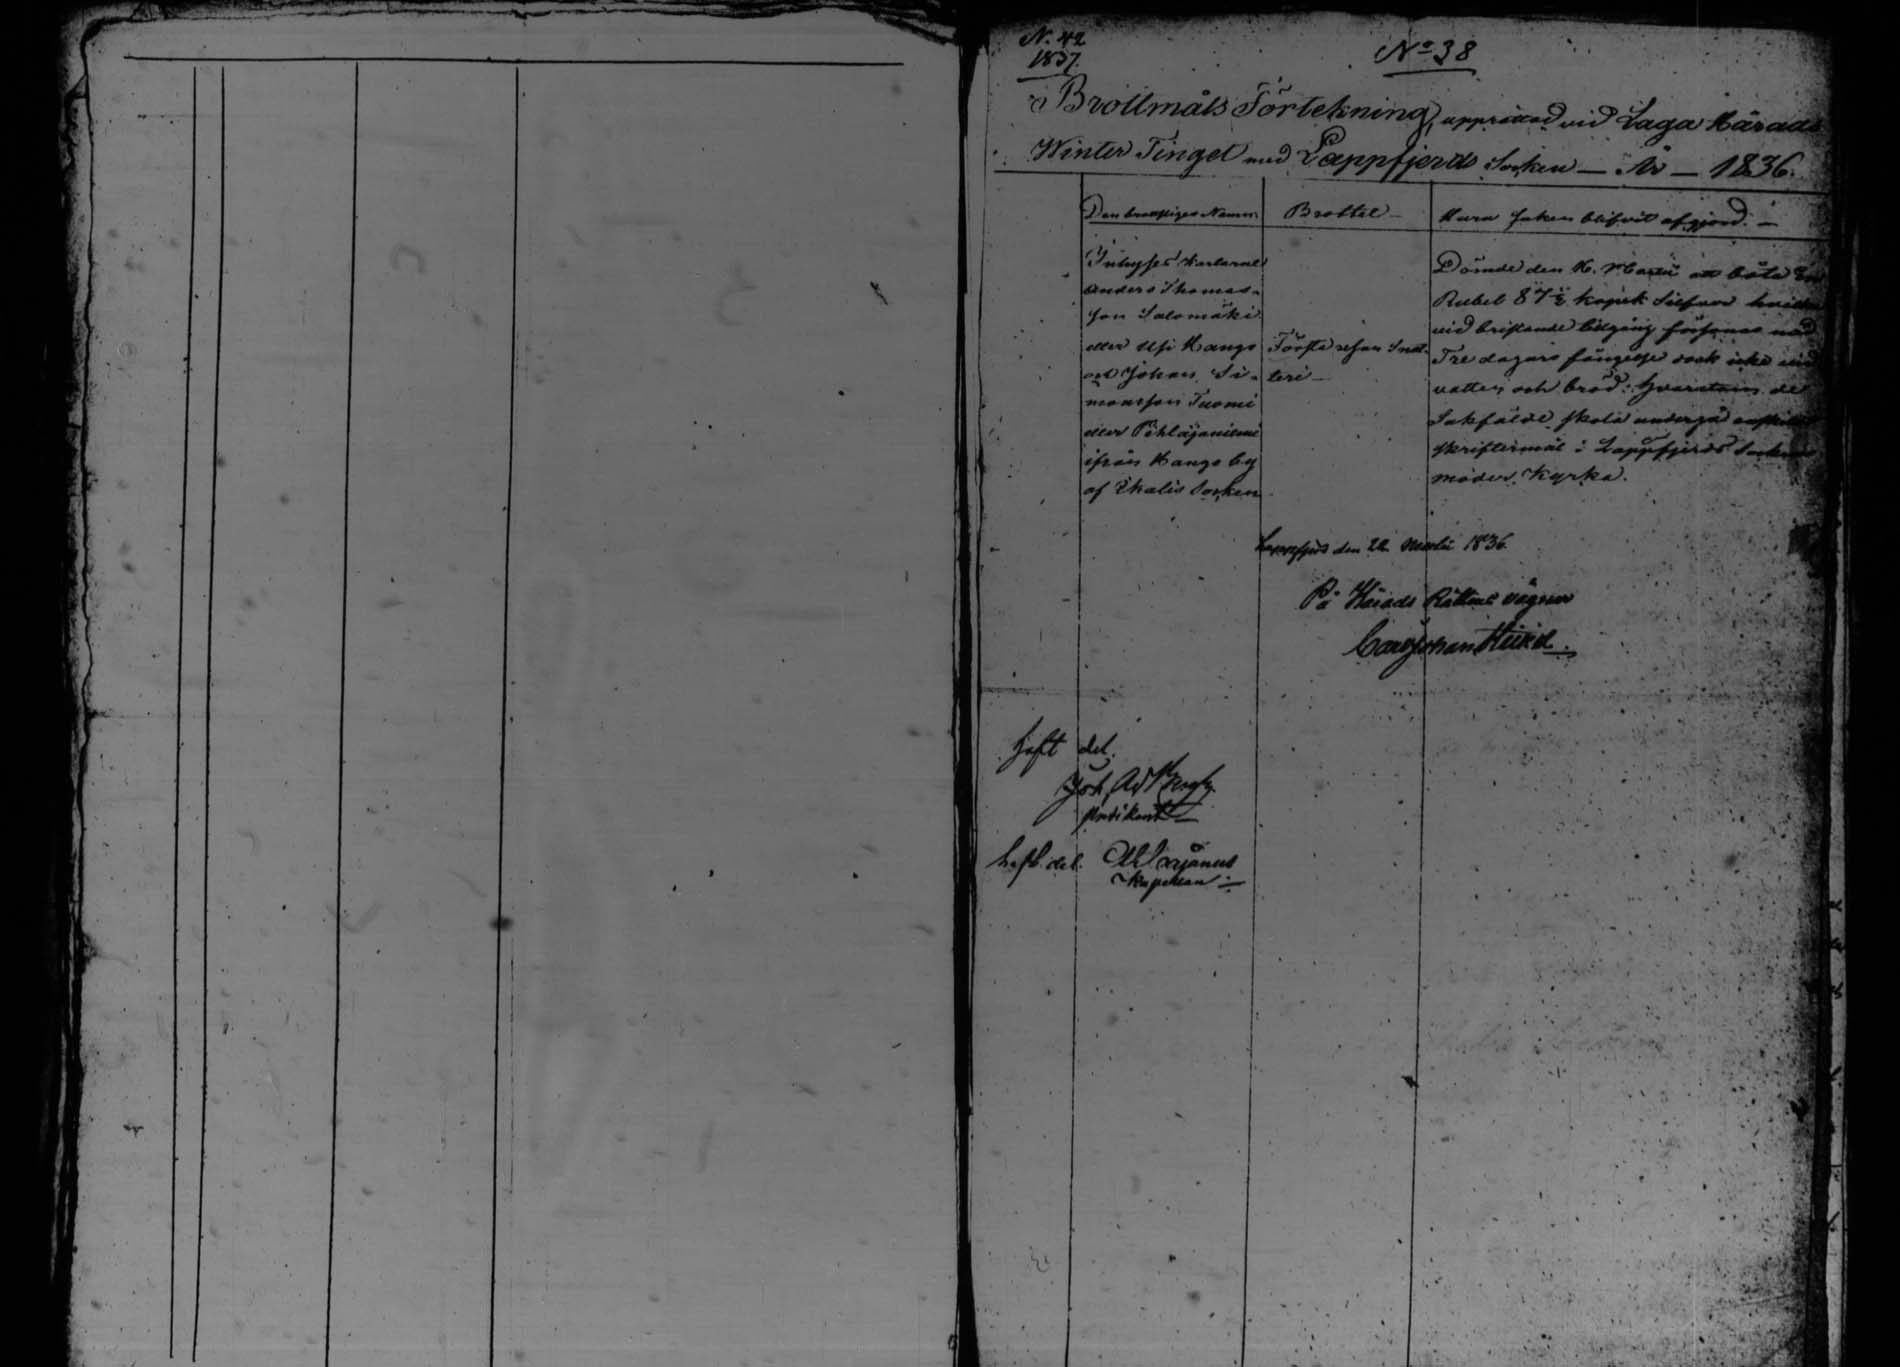 N. 42
1837.
No 38
Brottmåls Förtekning, upprättad vid Laga Härads
Winter Tinget med Lappfjerds Socken — År — 1836.
Den brottsliges Namn.
Brottet —
Huru saken blifvit afgjord. —
Inhyses Karlarne
Anders Thomas-
son Salomäki
eller Hangs
och Johan Si-
monsson Tuomi
eller Pihlajaniemi
ifrån Kangs by
af Ikalis Socken
Första resan Snat-
teri —
Dömde den Martii att böta En
Rubel 87 1/2 kopek Silfver hvilka
vid bristande tillgång försonas med
Tre dagars fängelse dock icke vid
vatten och bröd: hvarutom de
Sakfälde skola undergå enskilt
skriftermål i Lappfjerds Sockens
moder Kyrka.
Lappfjerd den 22 Martii 1836.
På Härads Rättens vägnar
Carl Johan Heikel.
haft del.
Joh. Ad.
Predikant —
haft del.
Kapellan —